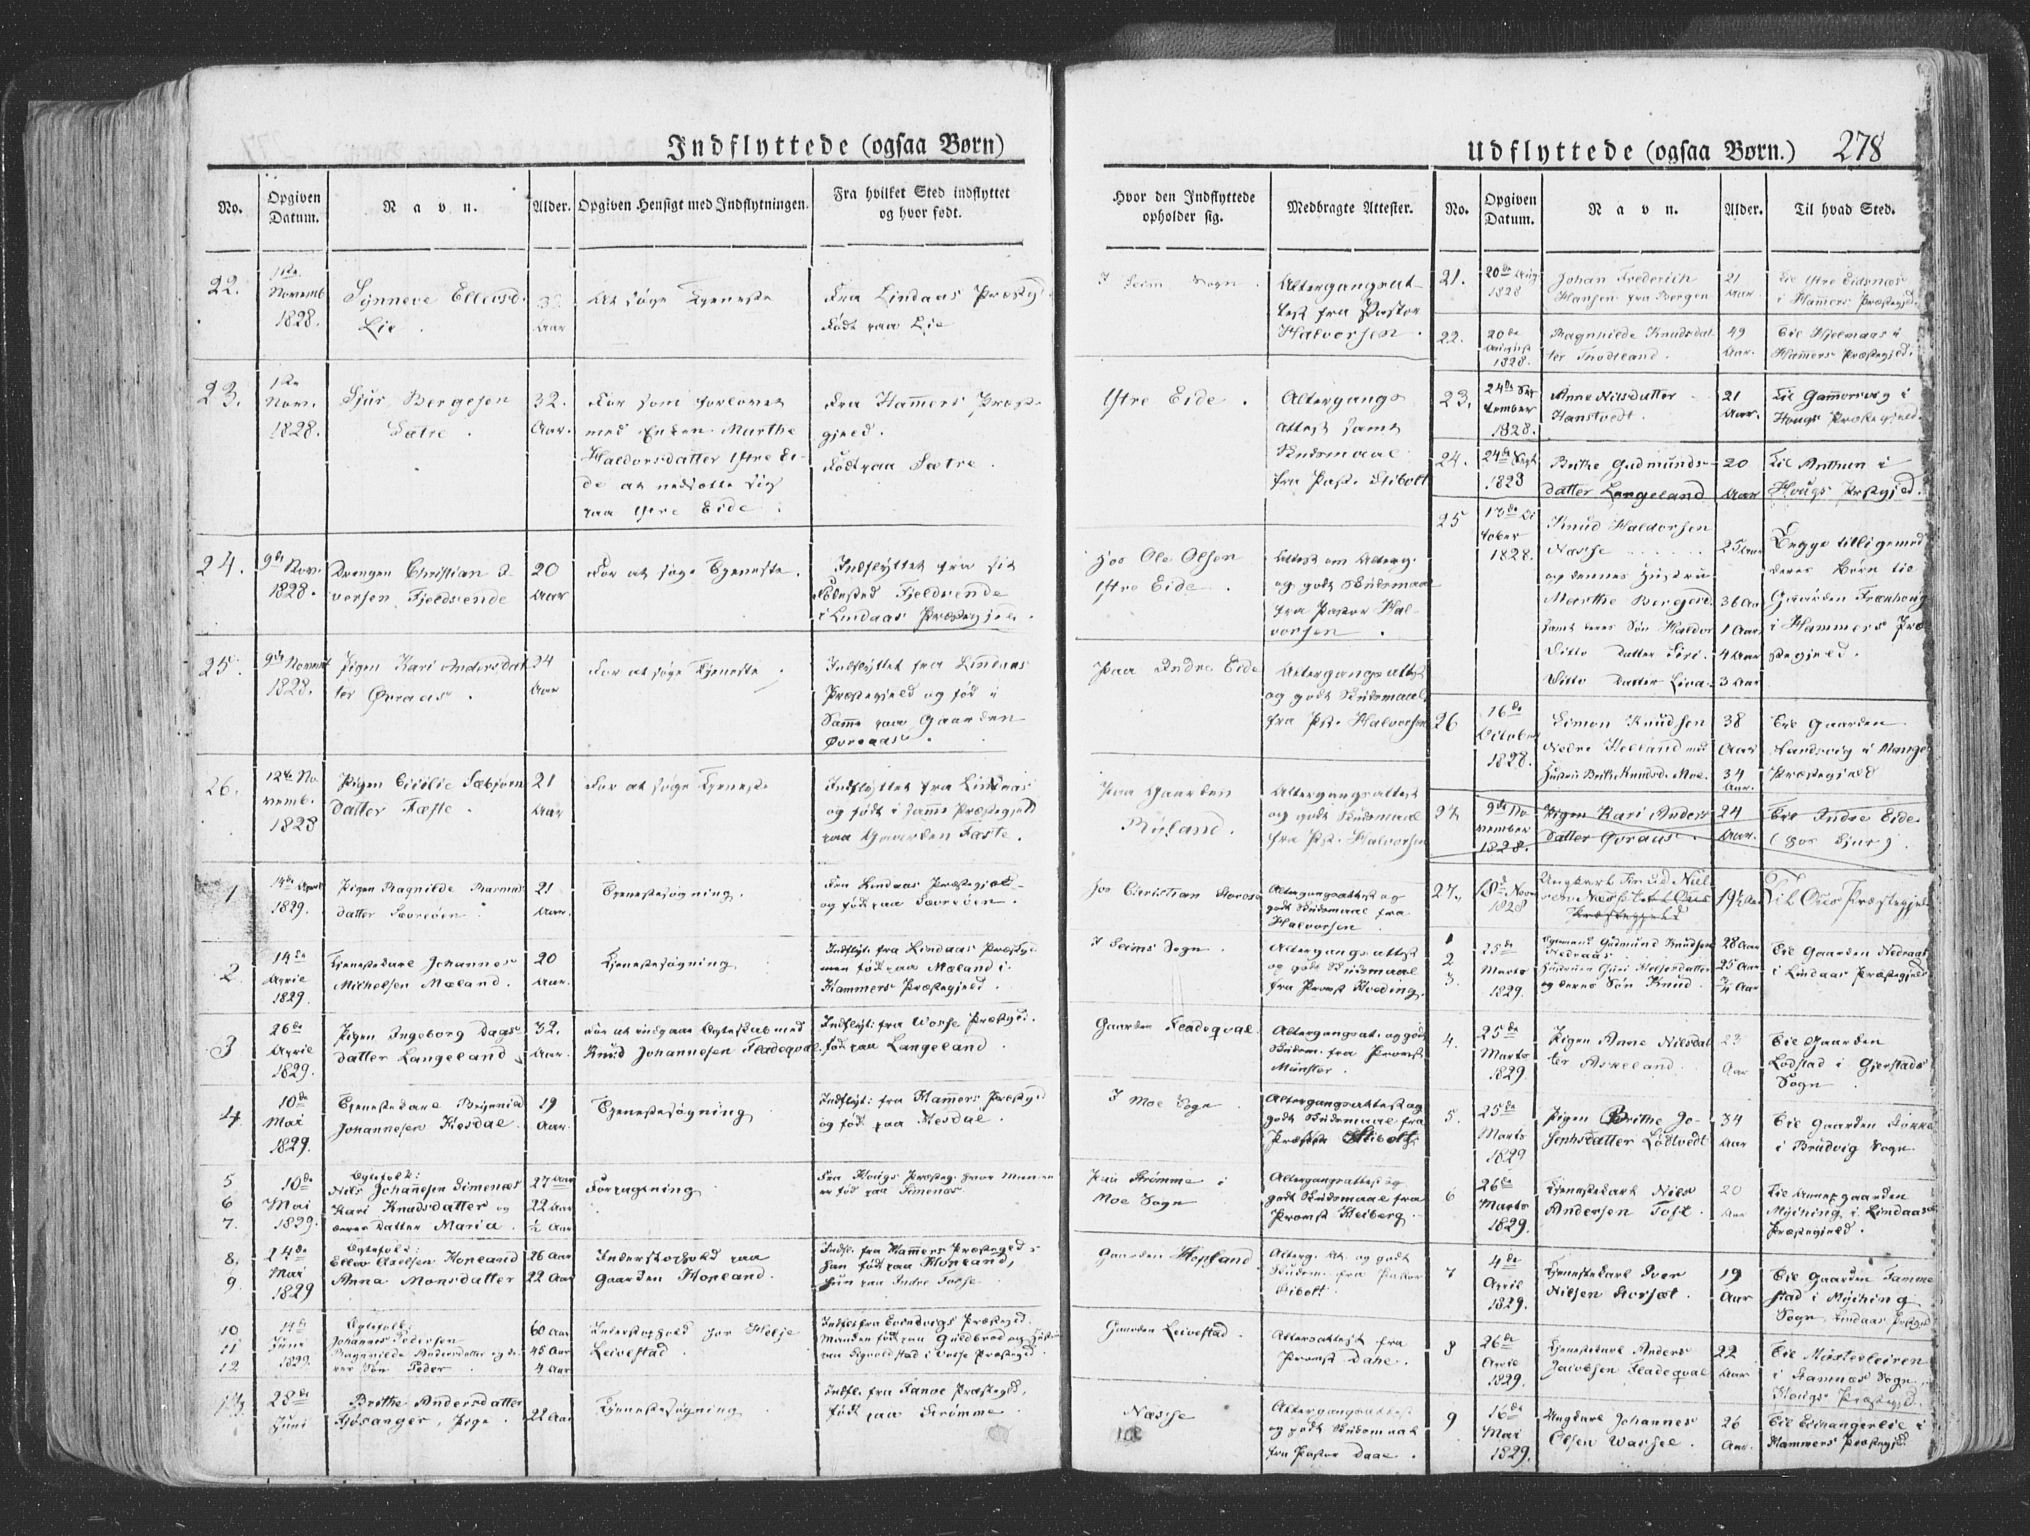 Indflyttede (ogsaa Børn)
No. Opgiven Datum. Navn. Alder. Opgiven Hensigt med Indflytningen. Fra hvilket Sted indflyttet og hvor født.
22. 1ste Novemb 1828. Synneve Ellevsd. Lie. Aar At søge Tjeneste Fra Lindaas Præstgj. Født paa Lie
23. 1ste Nov. 1828. Sjur Bergesen Sætre. 32. Aar. For som forlovet med Enken Marthe Haldorsdatter Ystre Eide at nedsætte sig paa Ystre Eide. Fra Hamers Præstegjeld. Født paa Sætre.
24. 9de Nov. 1828. Drengen Christian Iversen Fjeldsende 20 Aar For at søge Tjeneste. Indflyttet fra sit Fødested Fjeldsende i Lindaas Præstegjeld.
25. 9de Novemb 1828. Pigen Kari Andersdatter Øvraas. 24 Aar For at søge Tjeneste Indflyttet fra Lindaas Præstegjeld og fød i Samme paa Gaarden Øvraas.
26. 12te Novemb. 1828 Pigen Cicilie Sæbjørndatter Fæste. 21 Aar For at søge Tjeneste Indflyttet fra Lindaas og født i samme Præstegjeld paa Gaarden Fæste.
1 14de April 1829. Pigen Ragnilde Rasmusdatter Sævrøen. 21 Aar. Tjenestesøgning. Fra Lindaas Præstegjeld og fød paa Sævrøen.
2 14de April 1829. Tjenestekarl Johannes Michelsen Mæland. 20 Aar. Tjenestesøgning Indflyt. fra Lindaas Præstgj. men fød paa Mæland i Hammers Præstegjeld.
3 26de April 1829. Pigen Ingeborg Dagsdatter Langeland 32. Aar. For at indgaae Egteskab med Knud Johannesen Fladeqval. Indflyt: fra Vosse Præstegjd. fød paa Langeland.
4 10de Mai 1829. Tjenestekarl Brynnild Johannesen Kesdal. 19 Aar. Tjenestesøgning Indflyt: fra Hamers Præstgd og fød paa Kesdal.
5 6 7. 10de Mai 1829. Egtefolk: Nils Johannesen Simenæs Kari Knudsdatter og deres Datter Maria. 27 Aar 22 Aar ½ Aar Forpagtning Fra Hougs Præsteg. hvor Manden er fød paa Simenæs
8. 9. 24de Mai 1829 Egtefolk: Ellev Axelsen Hopland Anna Monsdatter 26 Aar 22 Aar Inderstophold paa Gaarden Hopland. Indfl. fra Hammers Præstegjd: han fød paa Hopland, hun paa Indre Tosse.
10 11 12 14de Juni 1829. Egtefolk: Johannes Pedersen Ragnilde Andersdatter og deres Søn Peder 60 Aar 45 Aar 4 Aar Inderstophold hos Helje Leivestad. Indflyt fra Evindvigs Præstegjd. Manden fød paa Guldbrod og paa Sigvoldstad i Vosse Præstegjd.
13. 28de Juni Brithe Andersdatter Fjøsanger, Pige. 22 Aar Tjenestesøgning Indfl. fra Fanøe Præstegjd, født paa Strømme.
Hvor den Indflyttede opholder sig. Medbragte Attester.
I Seim Sogn. Altergangsattest fra Pastor Halvorsen.
Ystre Eide. Altergangs Attest samt Skudsmaal fra Past. Stibolt
Hos Ole Olsen Ystre Eide. Attest om Alterg. og godt Skudsmaal fra Pastor Halvorsen.
Paa Indre Eide Altergangsattest og godt Skudsmaal fra Pst. Halvorsen
Paa Gaarden Ryland. Altergangsattest og godt Skudsmaal fra Pst. Halvorsen
Hos Christian Altergangsattest og godt Skudsmaal fra Halvorsen.
I Seims Sogn. Altergangsattest og godt Skudsmaal fra Provst Hveding.
Gaarden Fladeqval. Altergangsat. og godt Skudsm. fra Provst Münster.
I Moe Sogn. Altergangsattest og godt Skudsmaal fra Præsten Stibolt
Paa Strømme i Moe Sogn. Altergangsattest og godt Skudsmaal fra Provst Heiberg.
Gaarden Hopland. Alterg. At. og godt Skudsm. fra Pastor Stibolt.
Gaarden Leivestad. Altersattest fra Provst Dahl.
Næsse Altergangsattest og godt Skudsmaal fra Pastor Daae.
Udflyttede (ogsaa Børn.) 278
No. Opgiven Datum. Navn. Alder. Til hvad Sted.
21. 20de Aug 1828 Johan Frederich Hansen fra Bergen 21 Aar Til Ystre Eidsnæs i Hamers Præstegjeld.
22. 20de August 1828. Ragnhilde Knudsdatter Trodland. 49 Aar. Til Hjelmaas i Hamers Præstegjed.
23. 24de September 1828. Anne Nilsdatter Hanstvedt. 21 Aar. Til Gamersvig i Hougs Præstegjeld.
24. 24de Sept 1828 Brithe Gudmundsdatter Langeland 20 Aar Til Anthun i Hougs Præstegjed.
25 13de October 1828. Knud Haldorsen Næsse og dennes Hustru Marthe Bergesd. samt deres Søn Haldor Ditto Datter Siri. Ditto Datter Liva. 25 Aar 36 Aar 1 Aar 4 Aar 3 Aar Begge tilligemed deres Børn til Gaarden i Hammers Præstegjeld.
26 16de October 1828. Simon Knudsen Nedre Helland med Hustru Brithe Knudsd. Moe. 38 Aar 34 Aar. Til Gaarden Landsvig i Manger Præstegjeld
27 9de November 1828. Pigen Kari Andersdatter Øvraas. 24 Aar. Til Indre Eide (hos Sjur).
27. 18de Novbr 1828 Ungkarl Knud Nielsen Næsse til Oos Præstegjeld 19½ Aar Til Oos Præstegjeld
1 2 3. 25de Marts 1829. Gudmund Knudsen Nedraas. Hustruen Guri Helgesdatter og deres Søn Knud. 28 Aar 25 Aar ¾ Aar Til Gaarden Nedraas i Lindaas Præstegjeld
4. 25de Marts 1829. Pigen Anne Nilsdatter Askeland. 23 Aar Til Gaarden Lodstad i Gjerstads Sogn
5. 25de Marts 1829 Pigen Brithe Josephsdatter Lødtvedt 34 Aar Til Gaarden i Brudvig Sogn
6 26de Marts 1829. Tjenestekarl Niels Andersen Toft 20 Aar Til Annexgaarden Myching i Lindaas Præstegjeld.
7 4de April 1829. Tjenestekarl Iver Nilsen 19 Aar Til Gaarden i Myching Sogn, Lindaas Præstgjd
8 26de April 1829. Tjenestekarl Anders Jacobsen Fladeqval 22 Aar Til Mosterleiren i Hamnæs Sogn, Hougs Præstegjed.
9 16de Mai 1829. Ungkarl Johannes Olsen Vassel. 26 Aar. Til Eichangerlie i Hammers Præstegjd